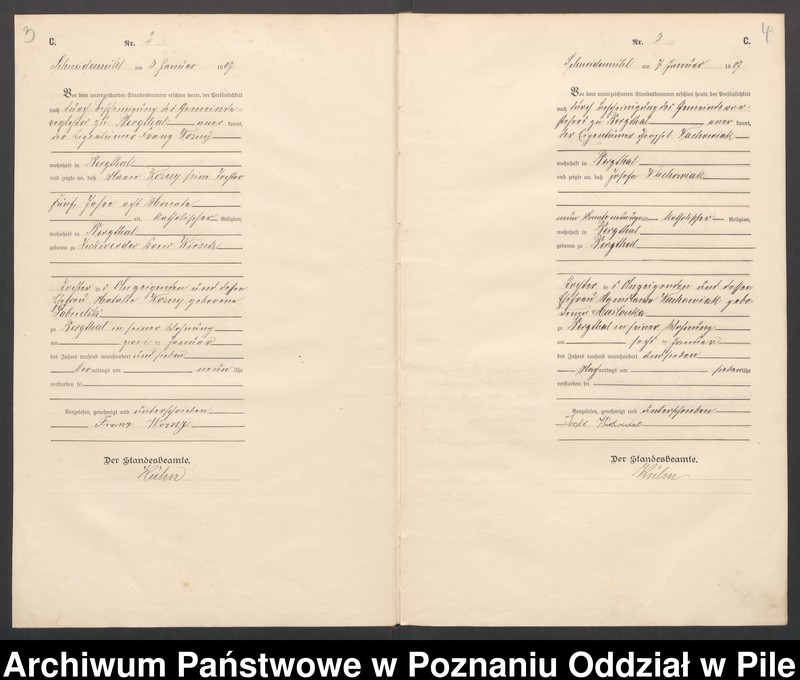 3
C.
Nr. 2
Schneidemühl am 3 Januar 1907.
Vor dem unterzeichneten Standesbeamten erschien heute, der Persönlichkeit
nach durch Bescheinigung des Gemeinde-
zu Bergthal anerkannt,
der Eigentümer Franz
wohnhaft in Bergthal
und zeigte an, daß Marie seine Tochter
fünf Jahre acht Monate
alt, katholischer Religion,
wohnhaft in Bergthal
geboren zu Kreis Wirsitz
Tochter des Anzeigenden und dessen
Ehefrau geborene
zu Bergthal in seiner Wohnung
am zwei = Januar
des Jahres tausend neunhundert und sieben
Vormittags um neun Uhr
verstorben sei
Vorgelesen, genehmigt und unterschrieben
Franz
Der Standesbeamte.
Kühn
4
Nr. 3
C.
Schneidemühl am 7 Januar 1907
Vor dem unterzeichneten Standesbeamten erschien heute, der Persönlichkeit
nach durch Bescheinigung des Gemeindevor-
stehers zu Bergthal anerkannt,
der Eigentümer Wachowiak
wohnhaft in Bergthal
und zeigte an, daß Josefa Wachowiak
neun Monate neun Tage katholischer Religion,
wohnhaft in Bergthal
geboren zu Bergthal
Tochter des Anzeigenden und dessen
Ehefrau Wachowiak gebo-
zu Bergthal in seiner Wohnung
am sechs = Januar
des Jahres tausend neunhundert und sieben
Nachmittags um sieben Uhr
verstorben sei
Vorgelesen, genehmigt und unterschrieben
Der Standesbeamte.
Kühn
Archiwum Państwowe w Poznaniu Oddział w Pile